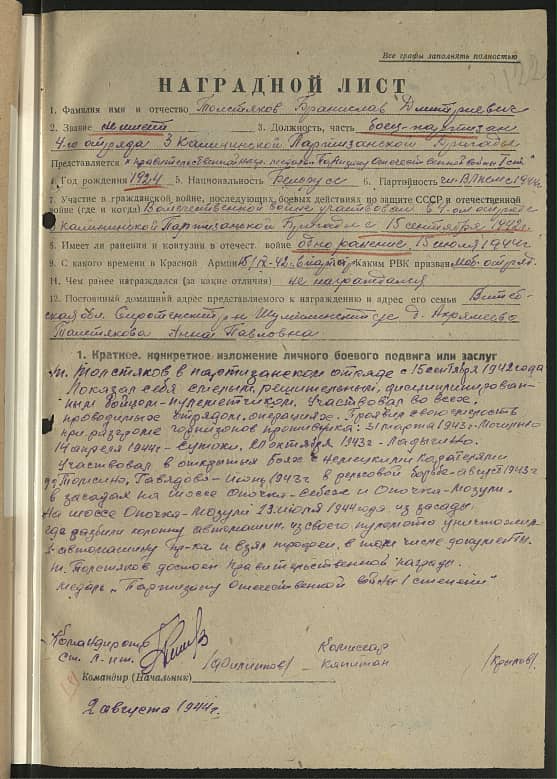 Все графы заполнять полностью
122
НАГРАДНОЙ ЛИСТ
1. Фамилия имя и отчество Толстяков Бранислав Дмитриевич
2. Звание 3. Должность, часть боец-партизан
4го отряда 3 Калининской Партизанской Бригады
Представляется к правительственной наг. медали "Партизану Отечественной войны 1 ст"
4. Год рождения 1924 5. Национальность Белорусс 6. Партийность чл. ВЛКСМ с 1944г
7. Участие в гражданской войне, последующих боевых действиях по защите СССР и отечественной
войне (где и когда) В отечественной войне участвовал в 4-ом отряде
калининской Партизанской Бригады с 15 сентября 1942г
8. Имеет ли ранения и контузии в отечест. войне одно ранение, 15 июля 1944г
9. С какого времени в Красной Армии 15/IX-42г. в парт. отр Каким РВК призван Моб. отряд.
11. Чем ранее награждался (за какие отличия) не награждался
12. Постоянный домашний адрес представляемого к награждению и адрес его семьи Витеб-
ская обл. Сиротенский р-н с/с д.
Толстякова Анна Павловна
1. Краткое, конкретное изложение личного боевого подвига или заслуг
т. Толстяков в партизанском отряде с 15 сентября 1942 года
Показал себя смелым, решительным, дисциплинирован-
ным бойцом-пулеметчиком. Участвовал во всех
проводимых отрядом операциях. Проявил свою смелость
при разгроме гарнизонов противника: 31 марта 1943г-
14 апреля 1944г- Сутоки, октября 1943г-
Участвовал в открытых боях с немецкими карателями
Толсино, - июнь 1943г в рельсовой борьбе-август 1943г
в засадах на шоссе Опочка-Себеж и Опочка-Мозули.
На шоссе Опочка-Мозули 13 июля 1944 года из засады
где разбили колонну автомашин, из своего пулемета уничтожил
1-автомашину пр-ка и взял трофеи, в том числе документы.
т. Толстяков достоен Правительственной награды
медаль "Партизану Отечественной войны 1 степени"
Командир отр
ст. л-нт. (Филиппов)
Комиссар
капитан (Крылов)
Командир (Начальник)
2 августа 1944г.